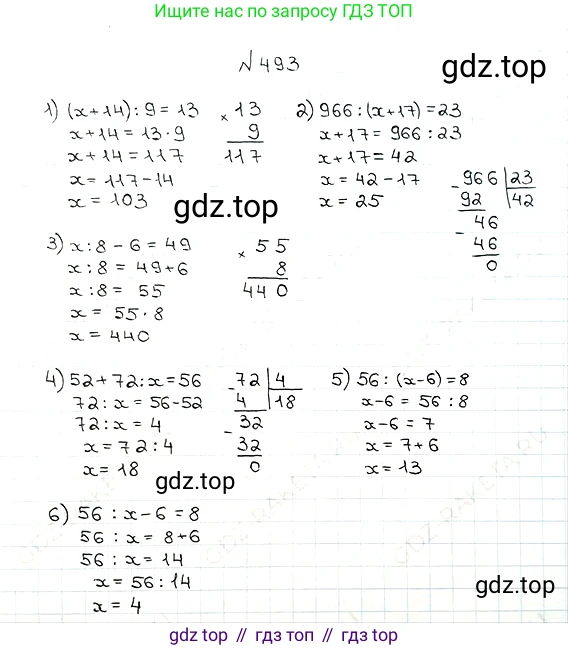 Ищите нас по запросу: gdz ТОП
№493
gdz.top
1) (x+14):9=13
x+14=13·9
x+14=117
x=117-14
x=103
× 13
9
117
2) 966:(x+17)=23
x+17=966:23
x+17=42
x=42-17
x=25
- 966 23
92 42
46
- 46
0
gdz.top
3) x:8-6=49
x:8=49+6
x:8= 55
x= 55·8
x=440
× 55
8
440
4) 52+72:x=56
72:x=56-52
72:x=4
x=72:4
x=18
- 72 4
4 18
32
- 32
0
5) 56:(x-6)=8
x-6=56:8
x-6=7
x=7+6
x=13
gdz.top
6) 56:x-6=8
56:x=8+6
56:x=14
x=56:14
x=4
gdz.top
gdz top // гдз топ // гдз top